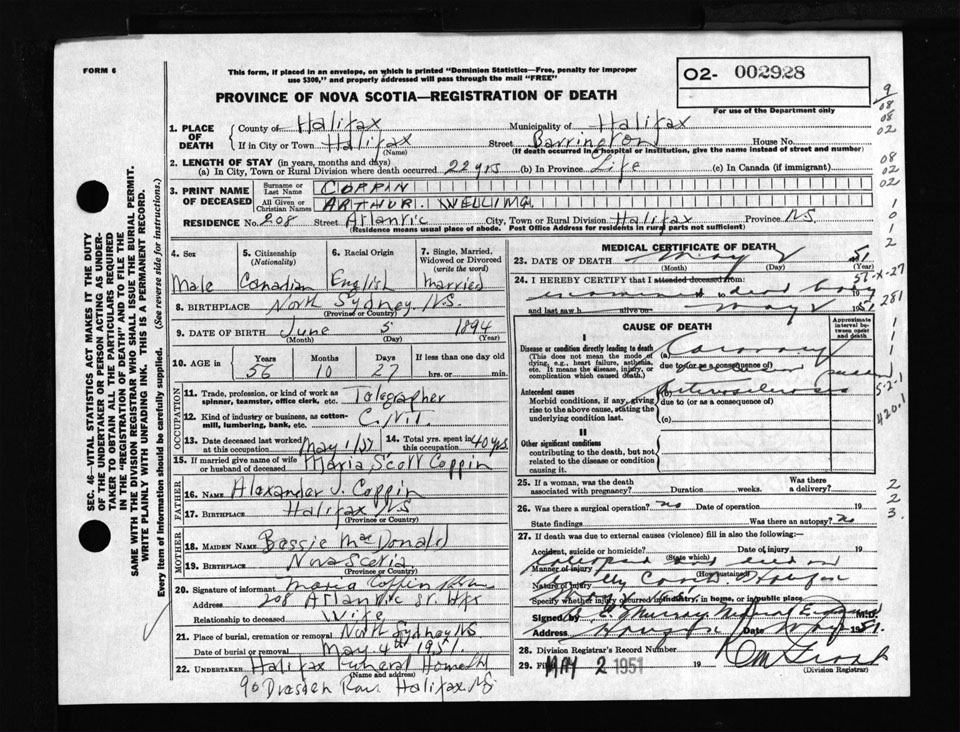 FORM 6
This form, if placed in an envelope, on which is printed "Dominion Statistics—Free, penalty for improper
use $300," and properly addressed will pass through the mail "FREE"
O2- 002928
For use of the Department only
PROVINCE OF NOVA SCOTIA—REGISTRATION OF DEATH
1. PLACE OF DEATH
County of Halifax Municipality of Halifax
If in City or Town Halifax (Name) Street Barrington House No.
(If death occurred in a hospital or institution, give the name instead of street and number)
2. LENGTH OF STAY (in years, months and days)
(a) In City, Town or Rural Division where death occurred 22 yrs (b) In Province Life (c) In Canada (if immigrant)
3. PRINT NAME OF DECEASED
Surname or Last Name COPPIN
All Given or Christian Names ARTHUR. WELLING.
RESIDENCE No. 208 Street Atlantic City, Town or Rural Division Halifax Province N.S.
(Residence means usual place of abode. Post Office Address for residents in rural parts not sufficient)
4. Sex Male
5. Citizenship (Nationality) Canadian
6. Racial Origin English
7. Single, Married, Widowed or Divorced (write the word) Married
8. BIRTHPLACE North Sydney N.S.
(Province or Country)
9. DATE OF BIRTH June 5 1894
(Month) (Day) (Year)
10. AGE in Years 56 Months 10 Days 27 If less than one day old hrs. or min.
OCCUPATION
11. Trade, profession, or kind of work as spinner, teamster, office clerk, etc. Telegrapher
12. Kind of industry or business, as cotton-mill, lumbering, bank, etc. C.N.T.
13. Date deceased last worked at this occupation May 1/51 14. Total yrs. spent in this occupation 40 yrs.
15. If married give name of wife or husband of deceased Maria Scott Coppin
FATHER
16. NAME Alexander J. Coppin
17. BIRTHPLACE Halifax NS
(Province or Country)
MOTHER
18. MAIDEN NAME Bessie MacDonald
19. BIRTHPLACE Nova Scotia
(Province or Country)
20. Signature of informant Maria Coppin
Address 208 Atlantic St. Hfx
Relationship to deceased Wife
21. Place of burial, cremation or removal North Sydney NS
Date of burial or removal May 4th 1951.
22. UNDERTAKER Halifax Funeral Home Ltd
(Name and address)
90 Dresden Row Halifax NS
MEDICAL CERTIFICATE OF DEATH
23. DATE OF DEATH May 2 51
(Month) (Day) (Year)
24. I HEREBY CERTIFY that I attended deceased from
examined dead body
and last saw h alive on May 2 1951
CAUSE OF DEATH
Approximate interval between onset and death
I
Disease or condition directly leading to death
(This does not mean the mode of dying, e.g., heart failure, asthenia, etc. It means the disease, injury, or complication which caused death.)
(a) Coronary
due to (or as a consequence of)
Antecedent causes
Morbid conditions, if any, giving rise to the above cause, stating the underlying condition last.
(b)
due to (or as a consequence of)
(c)
II
Other significant conditions
contributing to the death, but not related to the disease or condition causing it.
25. If a woman, was the death associated with pregnancy? Duration weeks. Was there a delivery?
26. Was there a surgical operation? no Date of operation 19
State findings Was there an autopsy? no
27. If death was due to external causes (violence) fill in also the following:
Accident, suicide or homicide? (State which) Date of injury 19
Manner of injury (How sustained)
Nature of injury
Specify whether injury occurred in industry, in home, or in public place.
Signed by Murray Medical M.D.
Address Halifax Date May 1951.
28. Division Registrar's Record Number
29. Filed MAY 2 1951 19
(Division Registrar)
SEC. 46—VITAL STATISTICS ACT MAKES IT THE DUTY
OF THE UNDERTAKER OR PERSON ACTING AS UNDER-
TAKER TO OBTAIN ALL THE PARTICULARS REQUIRED
IN THE "REGISTRATION OF DEATH" AND TO FILE THE
SAME WITH THE DIVISION REGISTRAR WHO SHALL ISSUE THE BURIAL PERMIT.
WRITE PLAINLY WITH UNFADING INK. THIS IS A PERMANENT RECORD.
Every item of Information should be carefully supplied. (See reverse side for instructions.)
9
08
08
02
08
02
02
1
0
1
2
51-X-27
281
1
1
1
5-2-1
420.1
2
2
3.